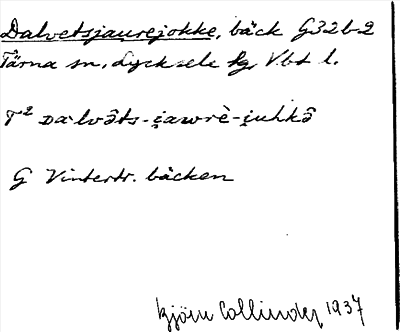 Dalvetsjaurejokke, bäck G32b-2
Tärna sn, Lycksele lg Vbt l.
T² Da'lvəts-i̯awrè-i̯uhkə̂
G Vintertr. bäcken
Björn Collinder 1937